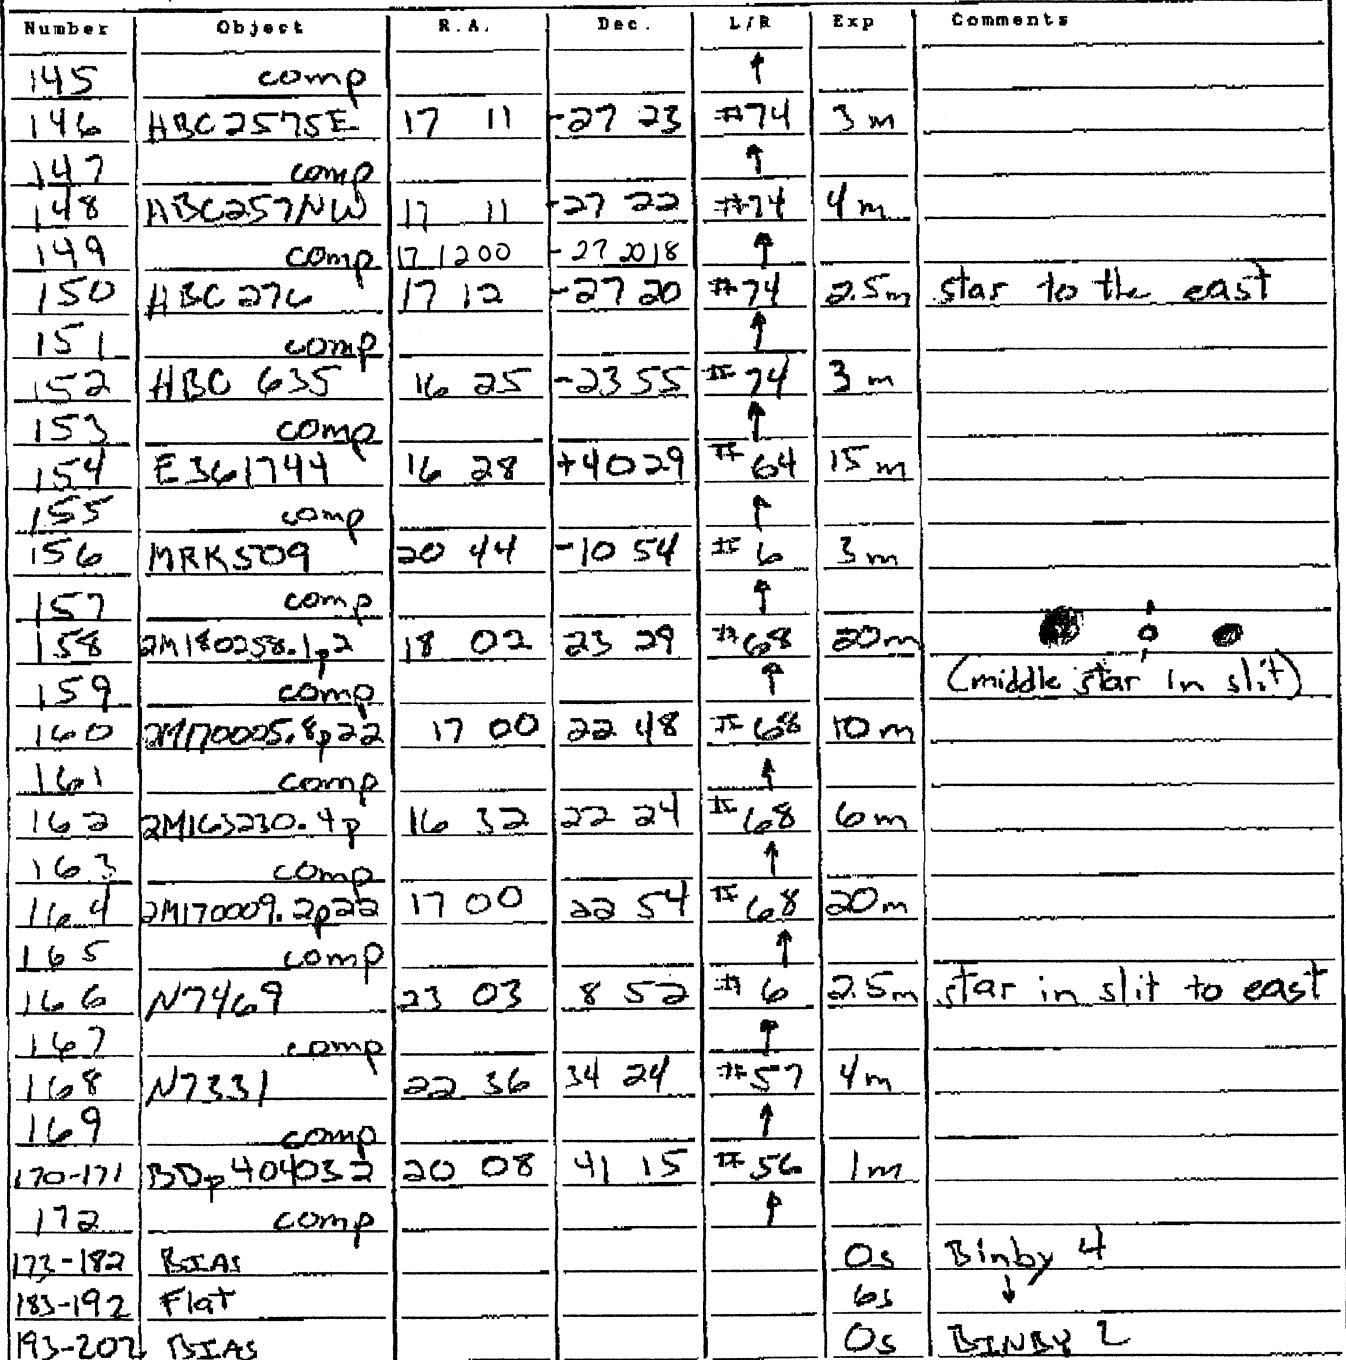 Number Object R.A. Dec. L/R Exp Comments
145 comp ↑
146 HBC2575E 17 11 -27 23 #74 3m
147 comp ↑
148 HBC257NW 17 11 -27 22 #74 4m
149 comp 17 12 00 -27 20 18 ↑
150 HBC 276 17 12 -27 20 #74 2.5m star to the east
151 comp ↑
152 HBC 635 16 25 -23 55 #74 3m
153 comp ↑
154 E361744 16 28 +40 29 #64 15m
155 comp ↑
156 MRK509 20 44 -10 54 #6 3m
157 comp ↑
158 2M180258.1p2 18 02 23 29 #68 20m
159 comp ↑ (middle star in slit)
160 2M170005.8p22 17 00 22 48 #68 10m
161 comp ↑
162 2M163230.4p 16 32 22 24 #68 6m
163 comp ↑
164 2M170009.2p22 17 00 22 54 #68 20m
165 comp ↑
166 N7469 23 03 8 52 #6 2.5m star in slit to east
167 comp ↑
168 N7331 22 36 34 24 #57 4m
169 comp ↑
170-171 BDp404032 20 08 41 15 #56 1m
172 comp ↑
173-182 BIAS 0s Binby 4
183-192 Flat 6s ↓
193-202 BIAS 0s BINBY 2